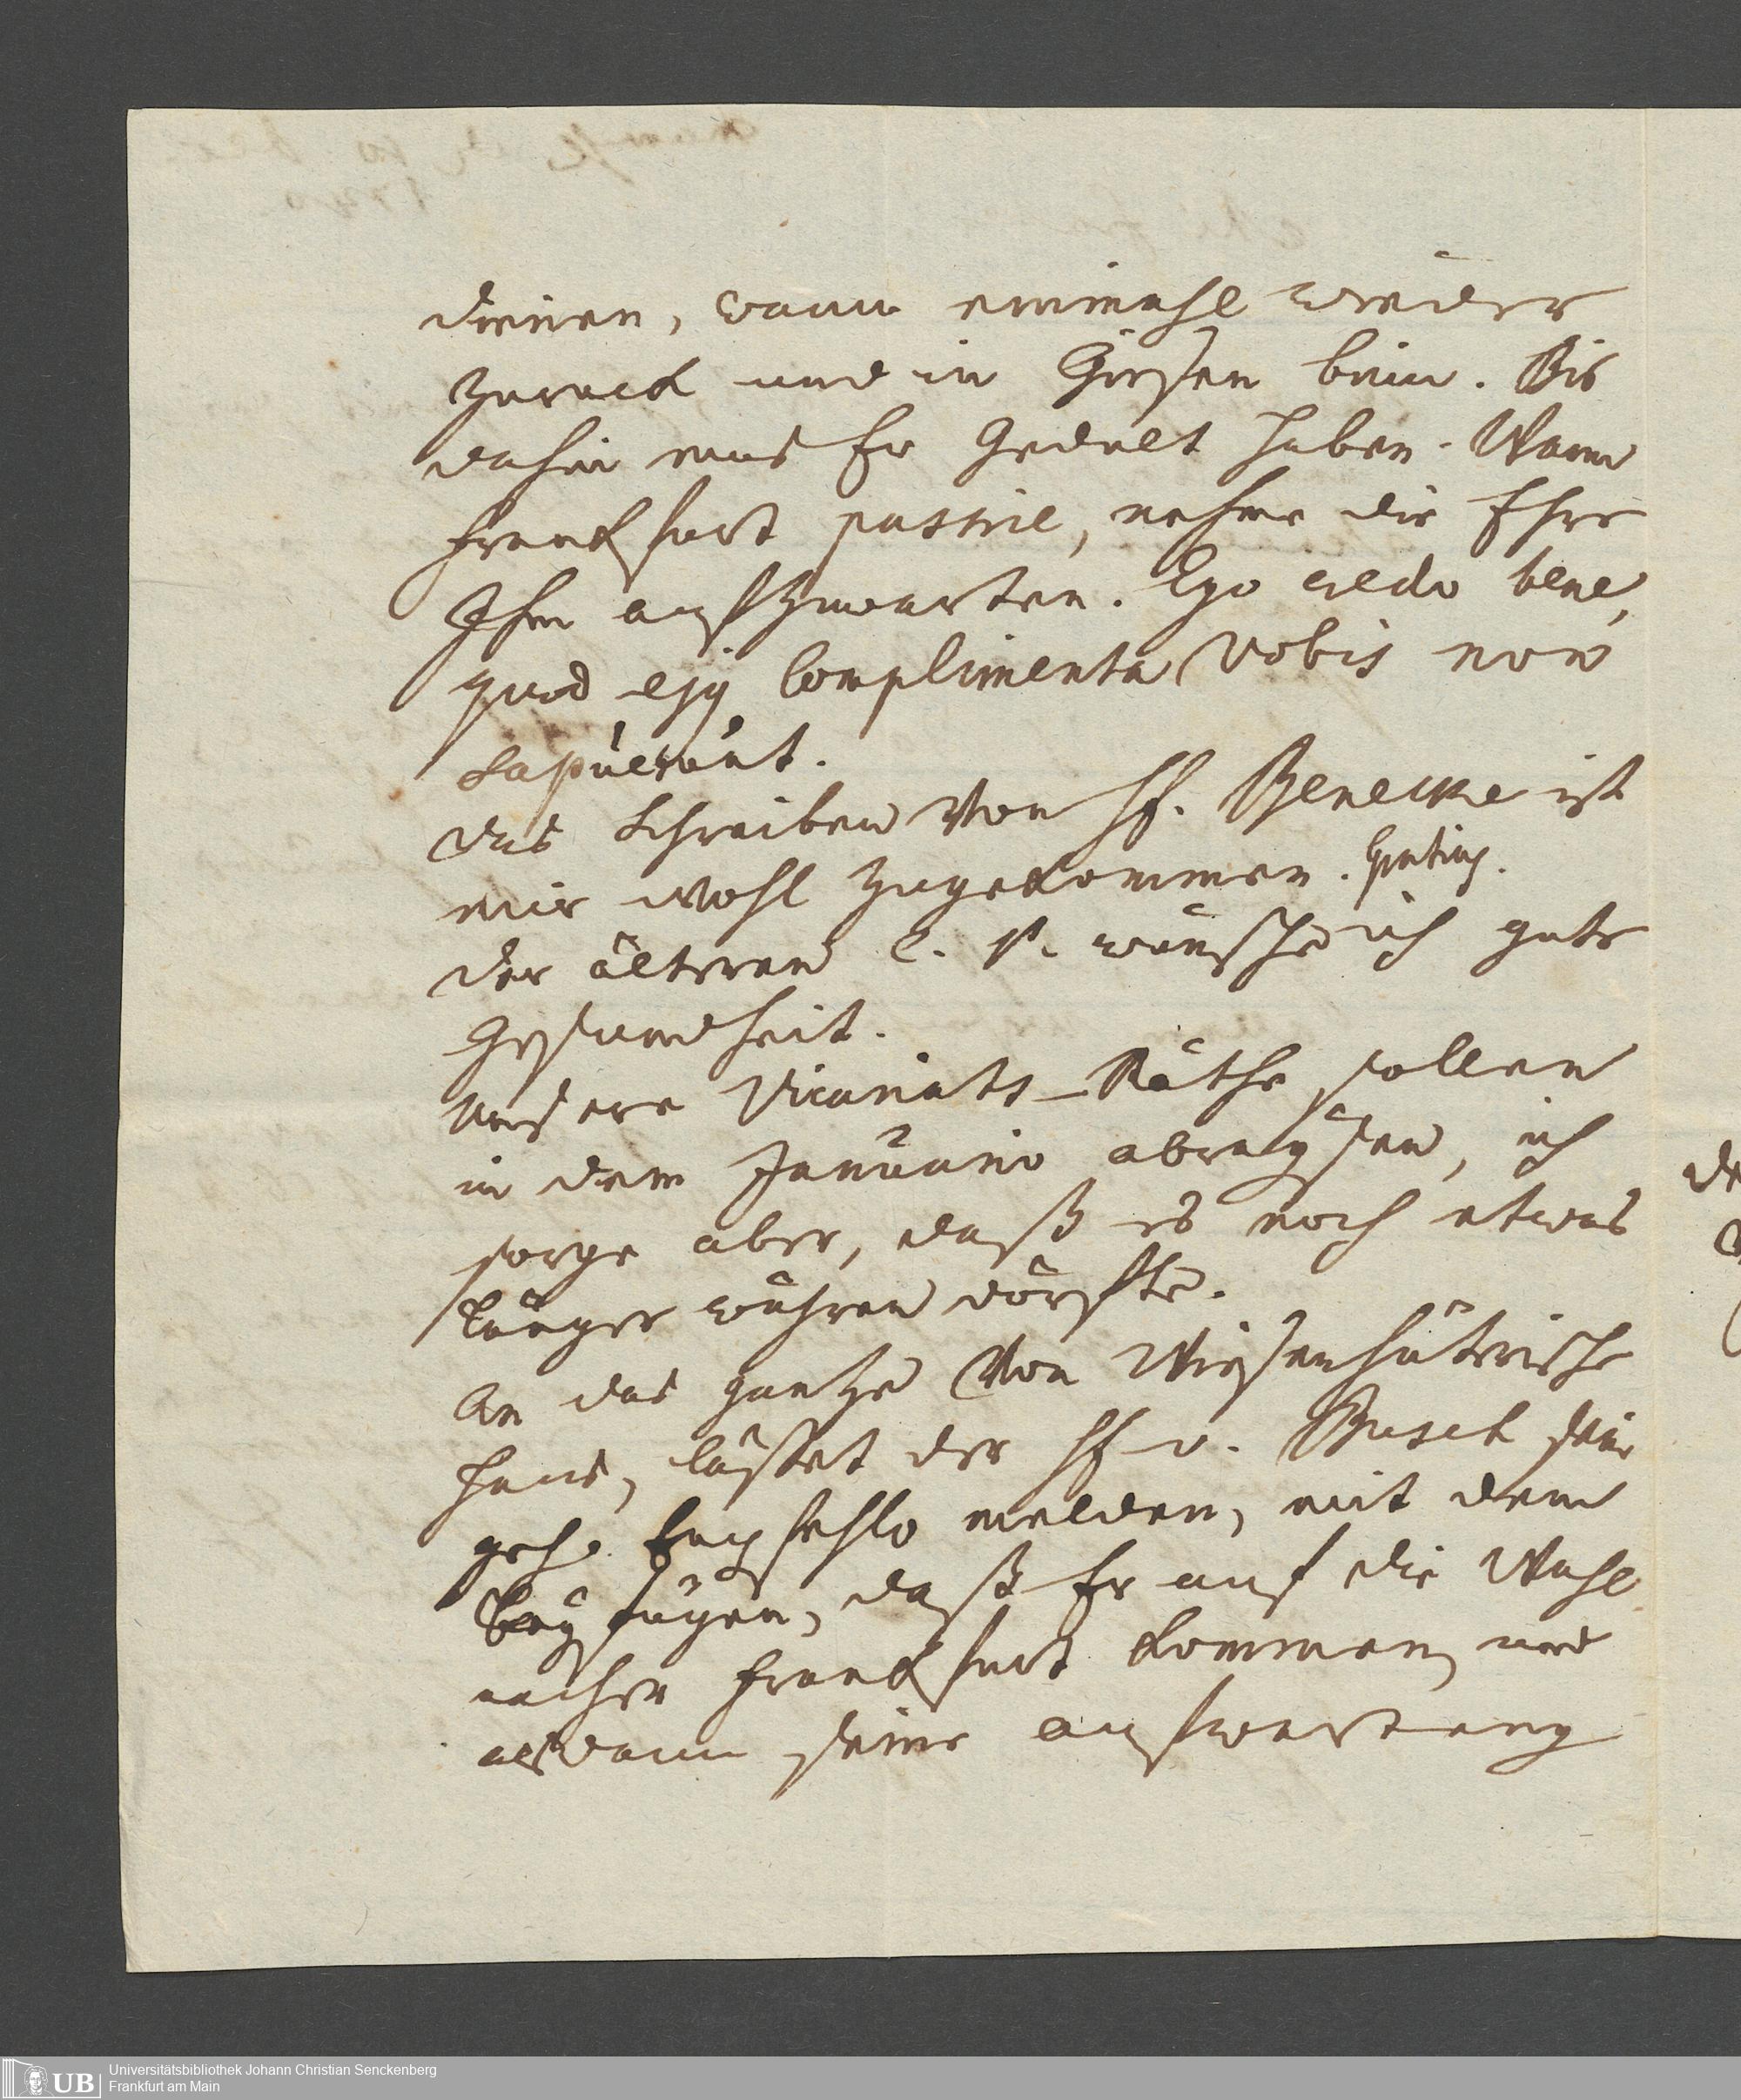 dienen, wann einmahl wieder
zuruck und in Giesen bin. Bis
dahin mus Er Gedult haben. Wann
Franckfurt passire, nehme die Ehre
Ihm aufzuwarten. Ego credo bene,
quod ejus Complimenta Vobis non
sapuerunt.
Das Schreiben Von H. Benecke ist
mir wohl zugekommen. Gratias.
Der älteren wünsche ich gute
Gesundheit.
Unsere Vicariats-Räthe sollen
in dem Januario abreysen, ich
sorge aber, daß es noch etwas
länger währen dörffte.
An das gantze Von Wiesenhüterische
Haus, lässet der H. v. Busch sein
Empfehlo melden, mit dem
beyfügen, daß Er auf die Wahl
nacher Franckfurt kommen, und
alsdann seine aufwartung
Universitätsbibliothek Johann Christian Senckenberg
Frankfurt am Main
UB